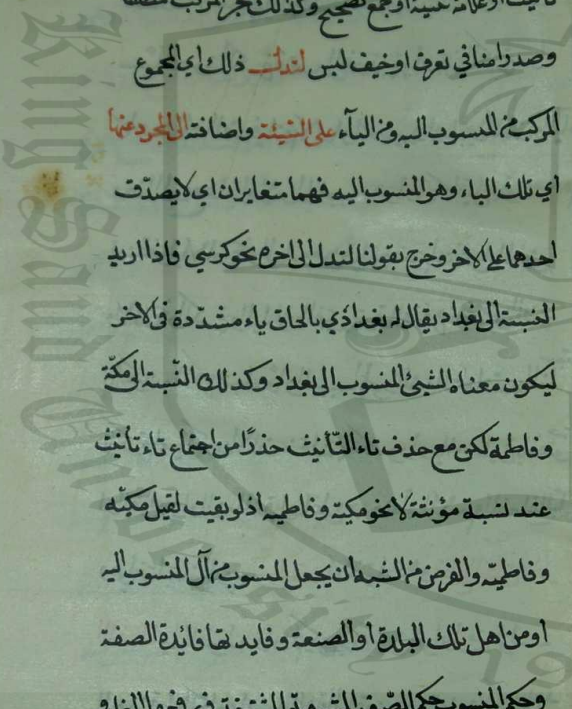 تانيث او علامة تثنية او جمع تصحيح وكذلك عجز المركب مطلقا
وصدر اضافي تعرف او خيف لبس لتدل ذلك اي المجموع
المركب من المنسوب اليه ومن الياء على النسبة واضافته الى المجرد عنها
اي تلك الياء وهو المنسوب اليه فهما متغايران اي لا يصدق
احدهما على الاخر وخرج بقولنا لتدل الى اخره نحو كرسي فاذا اريد
النسبة الى بغداد يقال له بغدادي بالحاق ياء مشددة في الاخر
ليكون معناه الشيئ المنسوب الى بغداد وكذلك النسبة الى مكة
وفاطمة لكن مع حذف تاء التأنيث حذرا من اجتماع تاء تأنيث
عند نسبة مؤنثة لا نحو مكية وفاطميه اذ لو بقيت لقيل مكتيه
وفاطمتيه والغرض من النسبة ان يجعل المنسوب من آل المنسوب اليه
او من اهل تلك البلدة او الصنعة وفايدتها فائدة الصفة
وحكم المنسوب حكم الصفة المشبهة
King Saud University